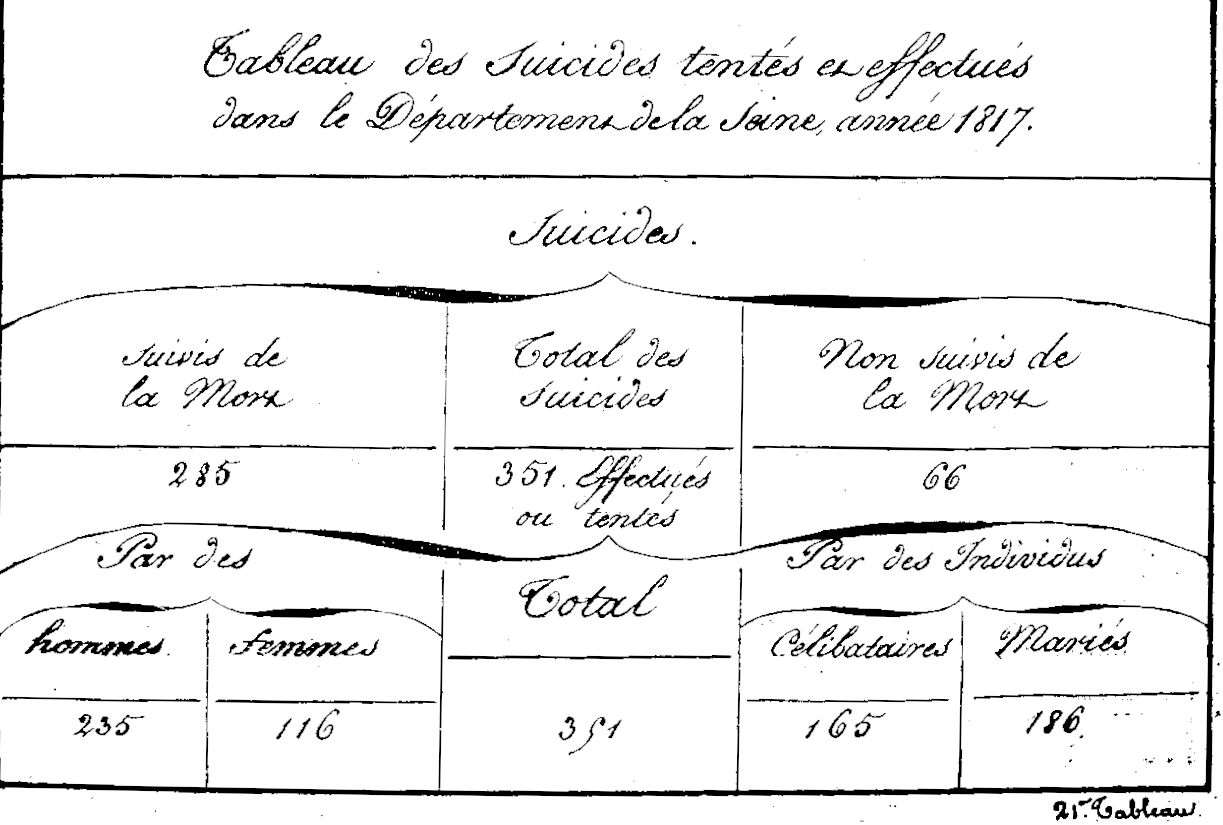 Tableau des Suicides tentés et effectués
dans le Département de la Seine, année 1817.
Suicides.
suivis de
la Mort
Total des
suicides
Non suivis de
la Mort
285
351. Effectués
ou tentés
66
Par des
Total
Par des Individus
hommes.
femmes
Célibataires
Mariés
235
116
351
165
186.
21.r Tableau.